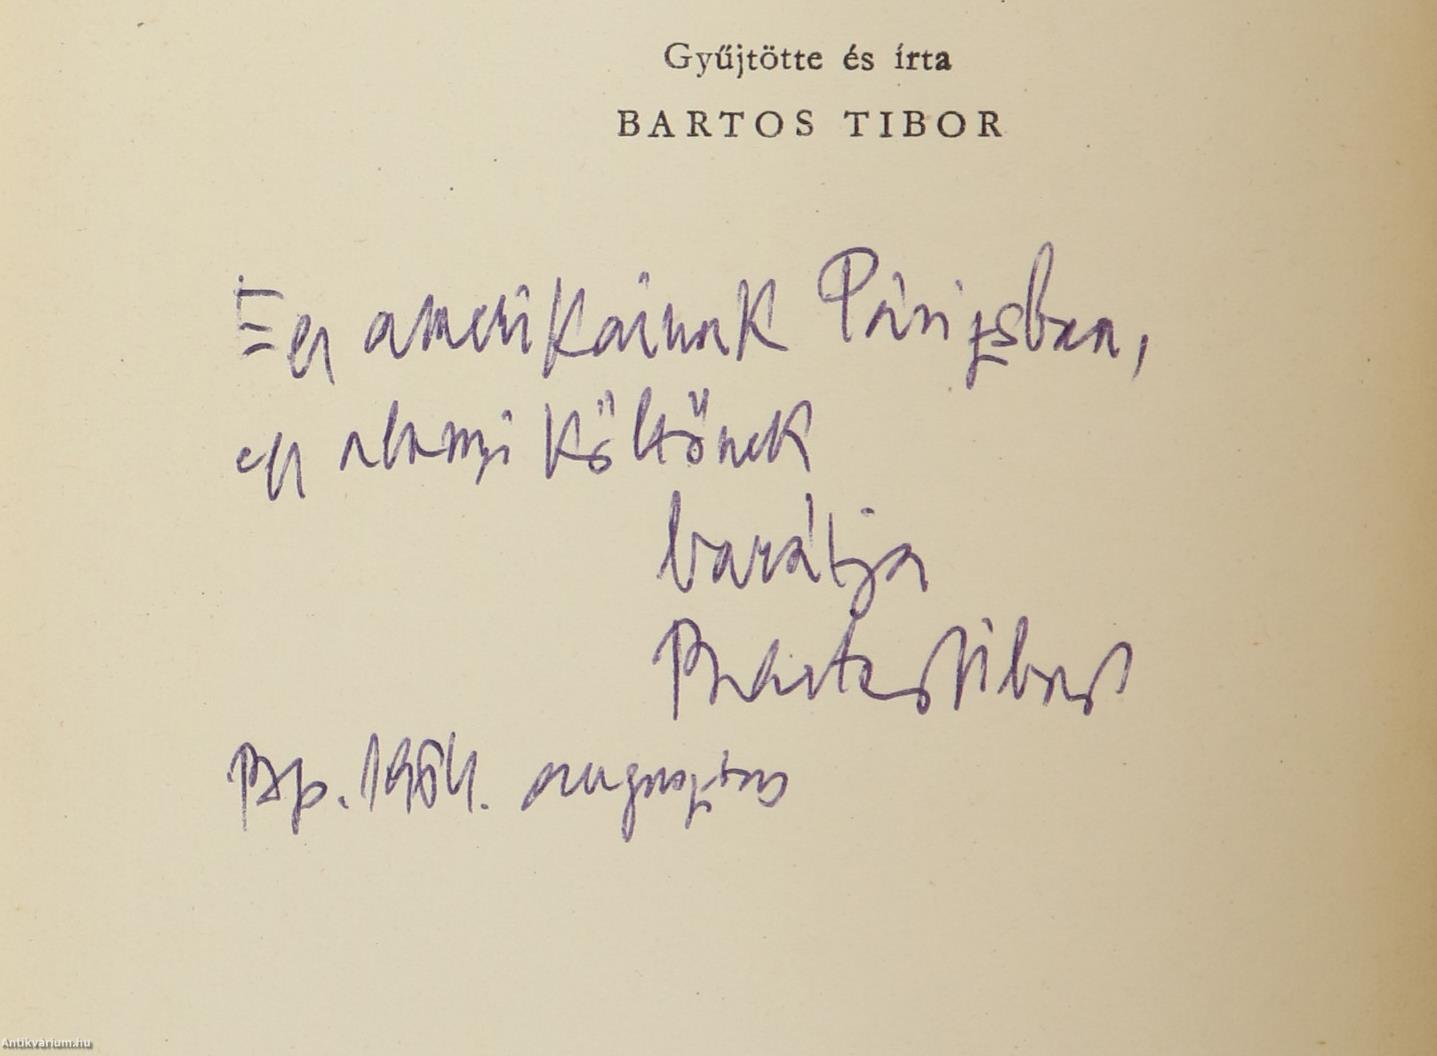 Gyűjtötte és írta
BARTOS TIBOR
Egy amerikainak Párizsban,
egy alanyi költőnek
barátja
Bartos Tibor
Bp. 1964. augusztus
Antikvárium.hu